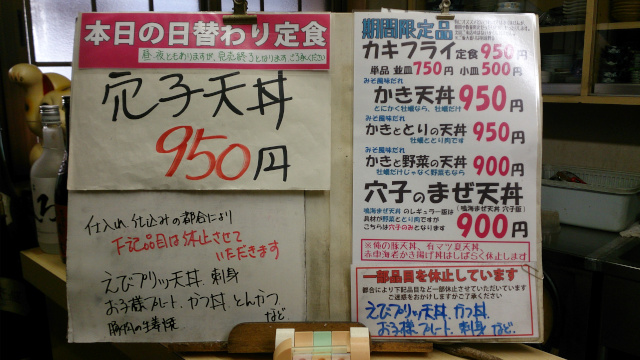 本日の日替わり定食
昼・夜ともありますが、完売終了となります。ご了承ください
穴子天丼
950円
仕入れ、仕込みの都合により
下記品目は休止させて
いただきます
えびプリッツ天丼、刺身
お子様プレート、かつ丼、とんかつ
豚肉の生姜焼 など、
期間限定品
カキフライ定食 950円
単品 並皿750円 小皿500円
みそ風味だれ
かき天丼 950円
とにかく牡蠣なら、牡蠣だけ
みそ風味だれ
かきととりの天丼 950円
牡蠣ととり肉です
みそ風味だれ
かきと野菜の天丼 900円
牡蠣だけじゃなく野菜もなら
穴子のまぜ天丼
(鳴海まぜ天丼 穴子版)
鳴海まぜ天丼 のレギュラー版は
具材が野菜ととり肉ですが
こちらは穴子のみとなります
900円
※俺の豚天丼、有マツ夏天丼、
赤車海老かき揚げ丼はしばらく休止します
一部品目を休止しています
都合により下記品目など一部休止させていただいています
ご迷惑をおかけしますがご了承ください
えびプリッツ天丼、かつ丼、
お子様プレート、刺身 など、